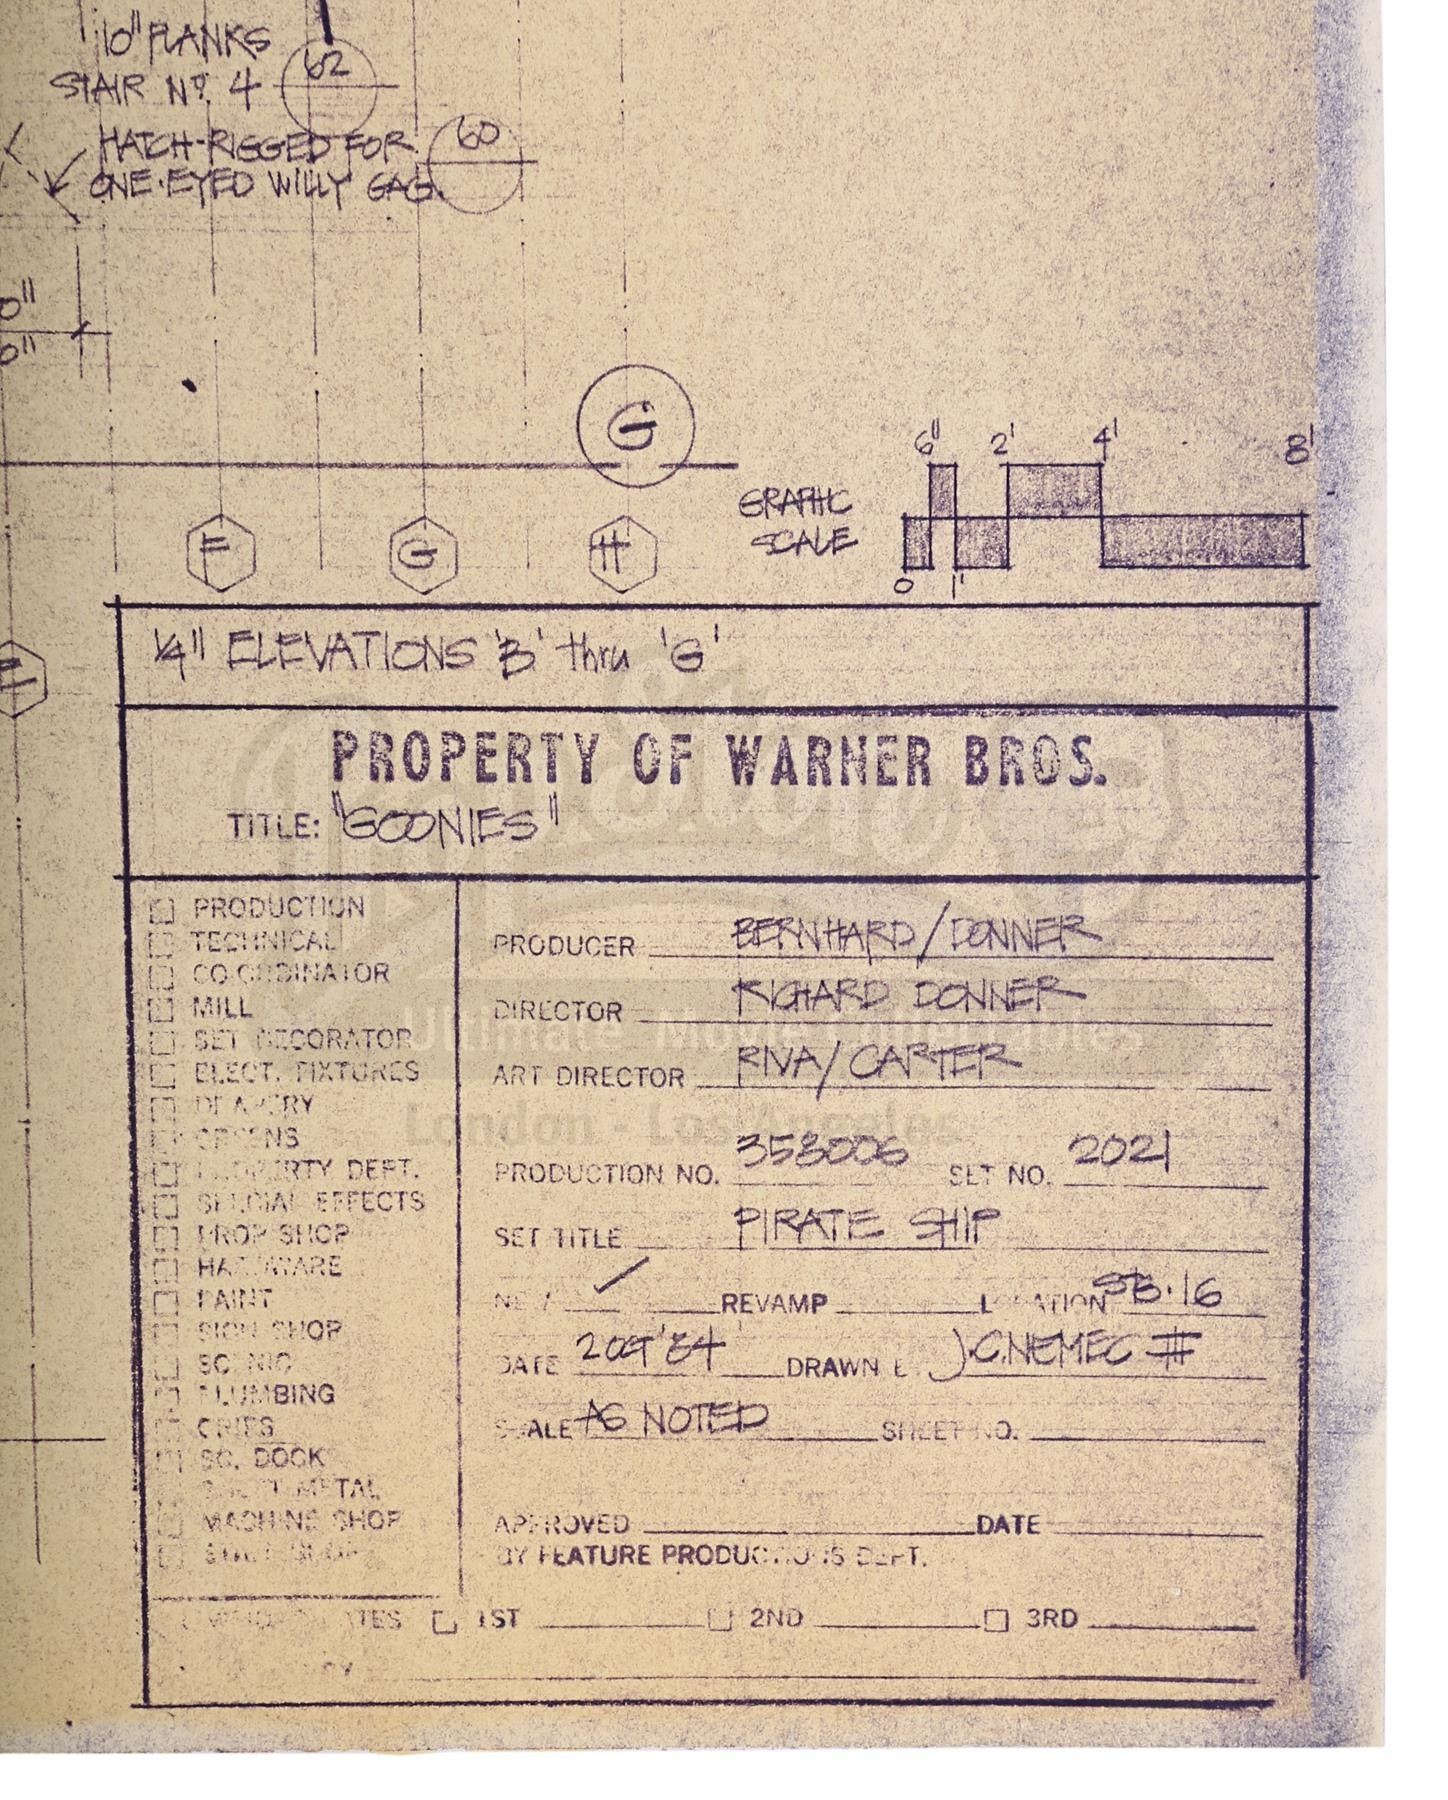 10" PLANKS
STAIR Nº. 4
62
HATCH-RIGGED FOR
ONE-EYED WILLY GAG.
60
0"
G
6" 2' 4' 8'
GRAPHIC
SCALE
0 1'
F G H
E
1/4" ELEVATIONS 'B' thru 'G'
PROPERTY OF WARNER BROS.
TITLE: "GOONIES"
PRODUCTION
TECHNICAL
CO-ORDINATOR
MILL
SET DECORATOR
ELECT. FIXTURES
DRAPERY
GREENS
PROPERTY DEPT.
SPECIAL EFFECTS
PROP SHOP
HARDWARE
PAINT
SIGN SHOP
SCENIC
PLUMBING
GRIPS
SC. DOCK
SHEET METAL
MACHINE SHOP
PRODUCER BERNHARD/DONNER
DIRECTOR RICHARD DONNER
ART DIRECTOR RIVA/CARTER
PRODUCTION NO. 358006 SET NO. 2021
SET TITLE PIRATE SHIP
NEW ✓ REVAMP LOCATION STG·16
DATE 2 OCT '84 DRAWN J.C. NEMEC III
SCALE AS NOTED SHEET NO.
APPROVED DATE
BY FEATURE PRODUCTIONS DEPT.
1ST 2ND 3RD
BY
Ultimate Movie Collectables
London - Los Angeles